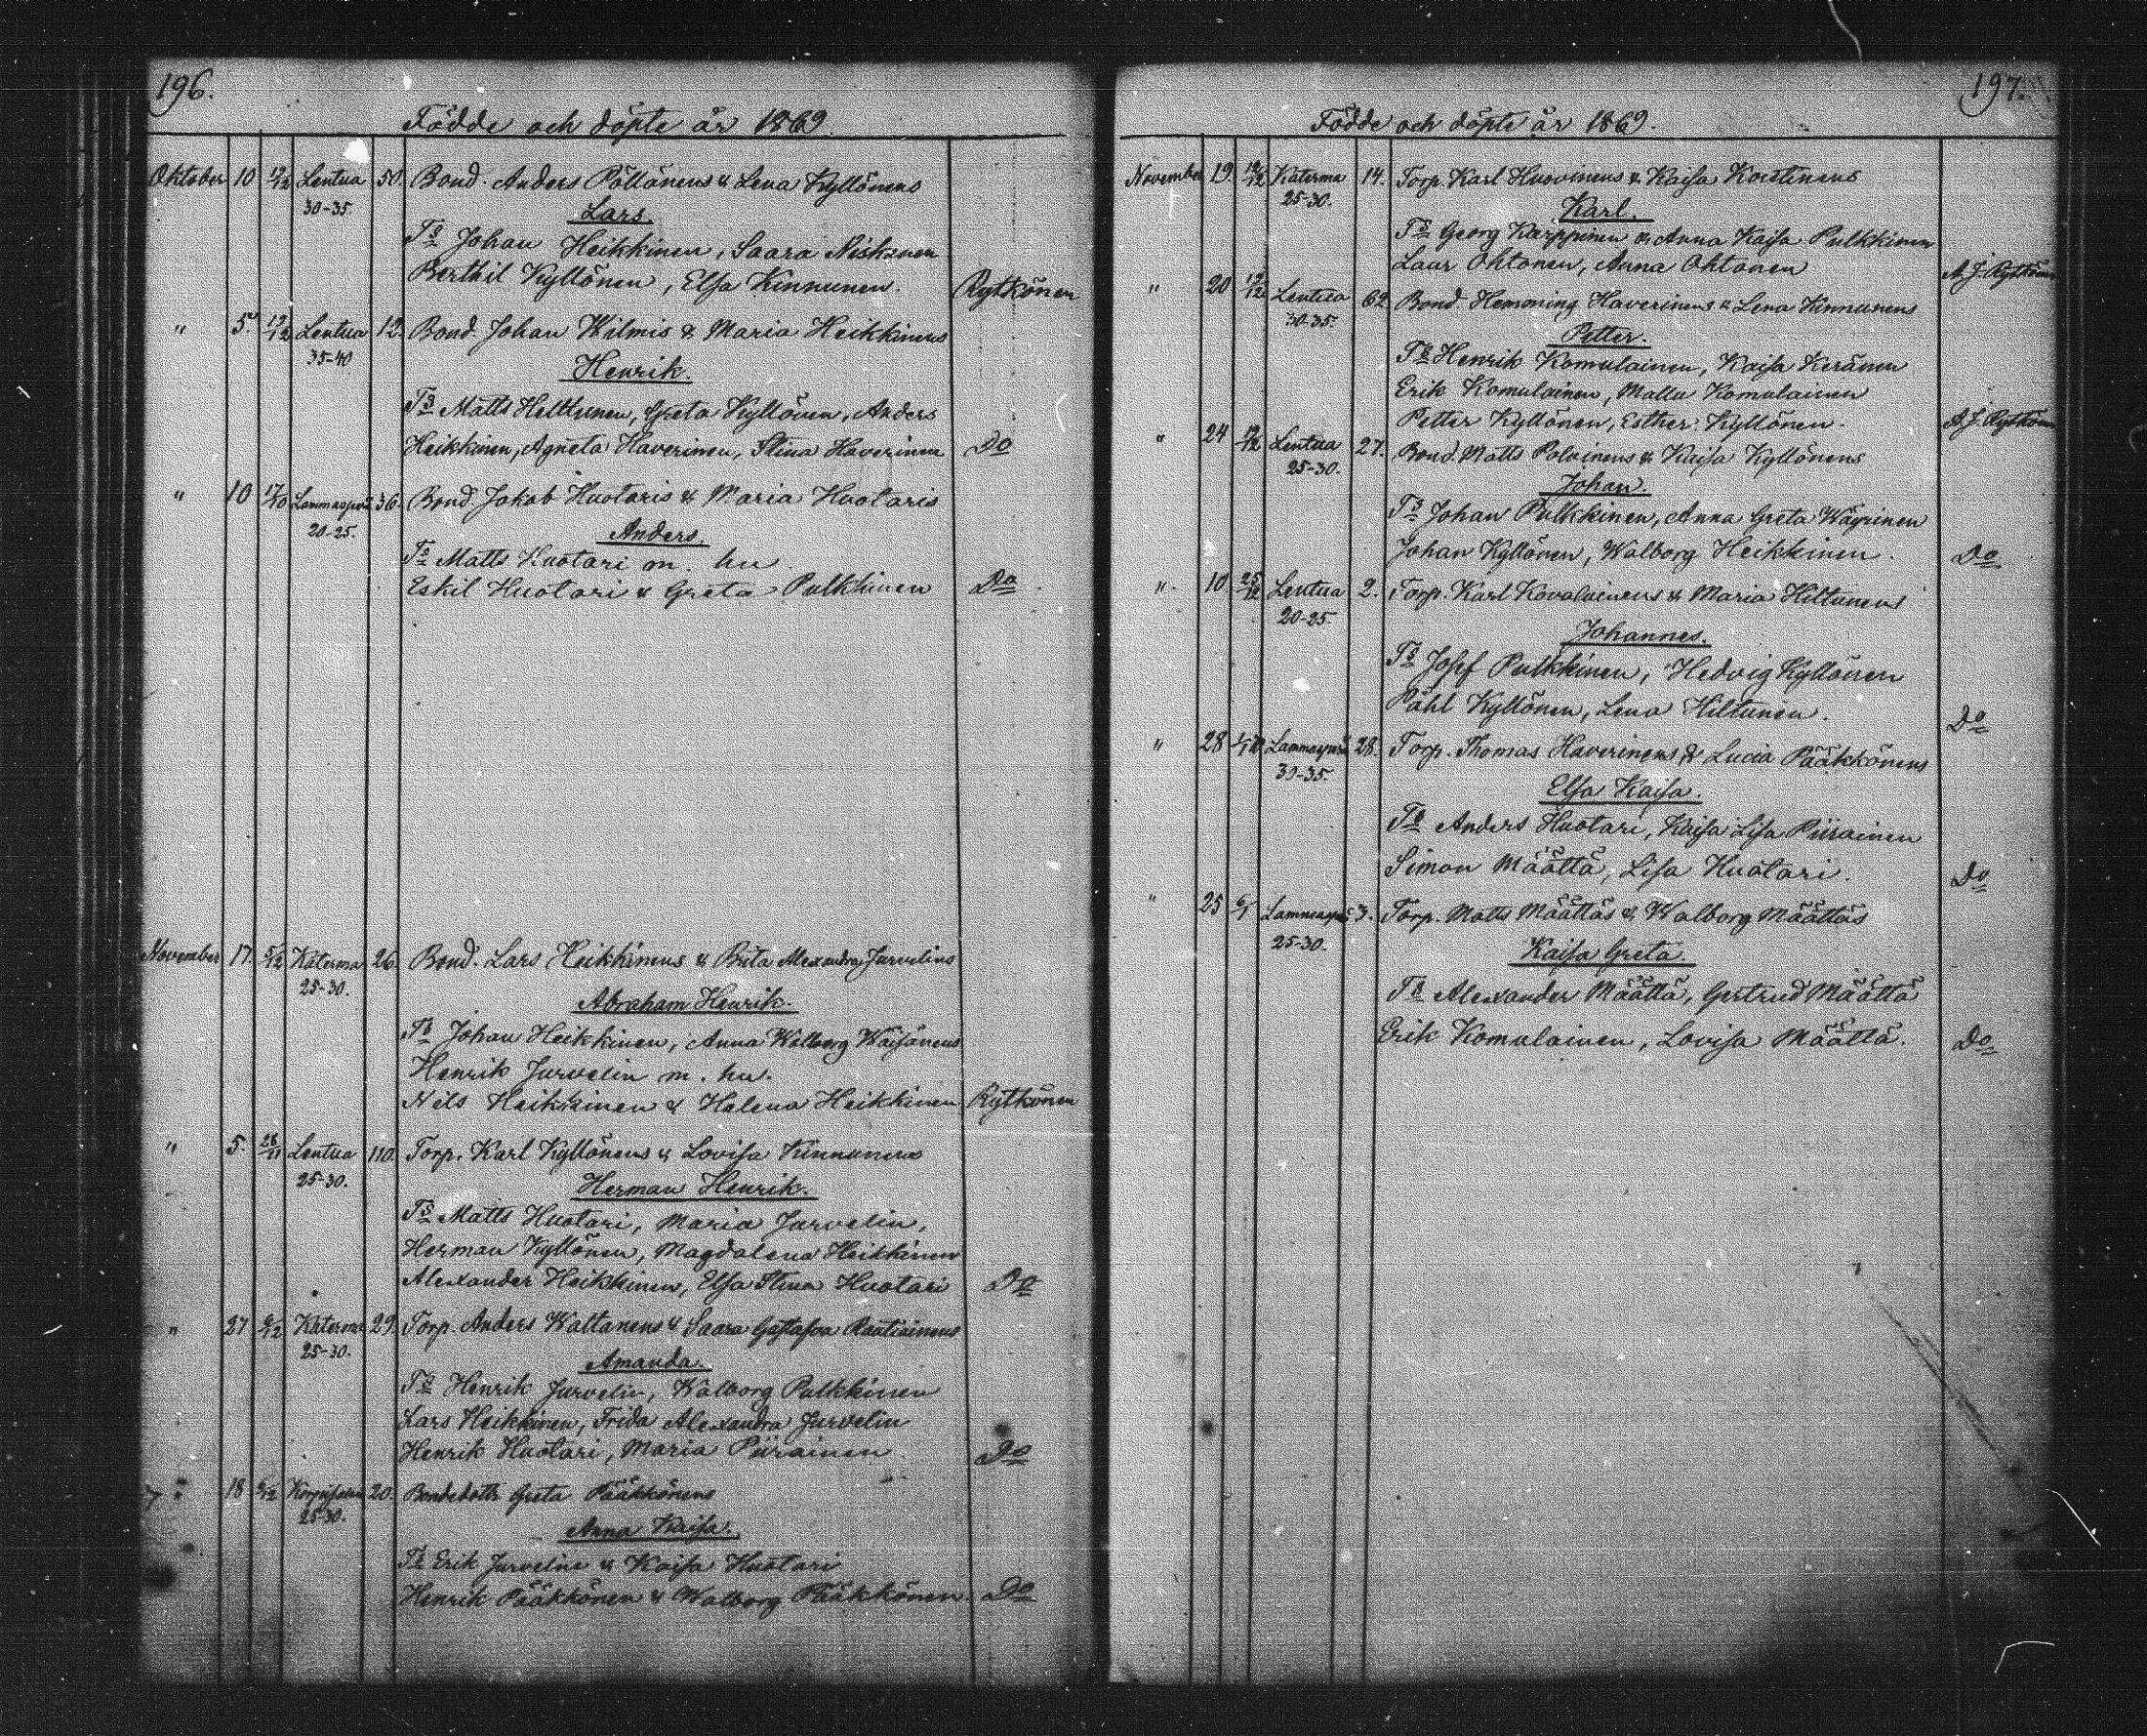 196.
Födde och döpte år 1869
Oktober 10 12/12 Lentua 50 Bond. Anders Pöllänens & Lena Kyllönens
30-35.
Lars.
Ts Johan Heikkinen, Saara Niskanen
Berthil Kyllönen, Elsa Kinnunen. Rytkönen
" 5 12/12 Lentua 12. Bond. Johan Wilmis & Maria Heikkinens
35-40
Henrik.
Ts Matts Helttunen, Greta Kyllönen, Anders
Heikkinen, Agneta Haverinen, Stina Haverinen Do
" 10 17/10 Lammasperä 36. Bond. Jakob Huotaris & Maria Huotaris
20-25.
Anders.
Ts Matts Huotari m. hu
Eskil Huotari & Greta Pulkkinen Do
November 17. 5/12 Katerma 26. Bond. Lars Heikkinens & Brita Alexandra Jurvelins
25-30.
Abraham Henrik.
Ts Johan Heikkinen, Anna Walborg Wäisänens
Henrik Jurvelin m. hu.
Nils Heikkinen & Helena Heikkinen Rytkönen
" 5. 28/11 Lentua 110. Torp. Karl Kyllönens & Lovisa Kinnunens
25-30.
Herman Henrik.
Ts Matts Huotari, Maria Jurvelin,
Herman Kyllönen, Magdalena Heikkinen
Alexander Heikkinen, Elsa Stina Huotari Do
" 27 6/12 Katerma 29. Torp. Anders Waltanens & Saara Gustafva Rautiainens
25-30.
Amanda.
Ts Henrik Jurvelin, Walborg Pulkkinen
Lars Heikkinen, Frida Alexandra Jurvelin
Henrik Huotari, Maria Piirainen Do
" 18 6/12 20. Bondedottr Greta Pääkkönens
25-30.
Anna Kaisa.
Ts Erik Jurvelin & Kaisa Huotari
Henrik Pääkkönen & Walborg Pääkkönen. Do
197.
Födde och döpte år 1869.
November 19. 12/12 Katerma 14. Torp. Karl Huovinens & Kaisa Korttinens
25-30.
Karl.
Ts Georg Karppinen & Anna Kaisa Pulkkinen
Laur Ohtonen, Anna Ohtonen A. J. Rytkönen
" 20 12/12 Lentua 62. Bond. Hemming Haverinens & Lena Kinnunens
30-35.
Petter.
Ts Henrik Komulainen, Kaisa Keränen
Erik Komulainen, Mallu Komulainen
Petter Kyllönen, Esther Kyllönen. A. J. Rytkönen
" 24 Lentua 27. Bond. Matts Polvinens & Kaisa Kyllönens
25-30.
Johan.
Ts Johan Pulkkinen, Anna Greta Wäyrinen
Johan Kyllönen, Walborg Heikkinen. Do
" 10 25/12 Lentua 2. Torp. Karl Kovalainens & Maria Hiltunens
20-25.
Johannes.
Ts Josef Pulkkinen, Hedvig Kyllönen
Påhl Kyllönen, Lena Hiltunen. Do
" 28 Lammasperä 28. Torp. Thomas Haverinens & Lucia Pääkkönens
30-35.
Elsa Kaisa.
Ts Anders Huotari, Kaisa Lisa Piirainen
Simon Määttä, Lisa Huotari. Do
" 25 6/1 Lammasperä 3. Torp. Matts Määttäs & Walborg Määttäs
25-30.
Kaisa Greta.
Ts Alexander Määttä, Gertrud Määttä
Erik Komulainen, Lovisa Määttä. Do